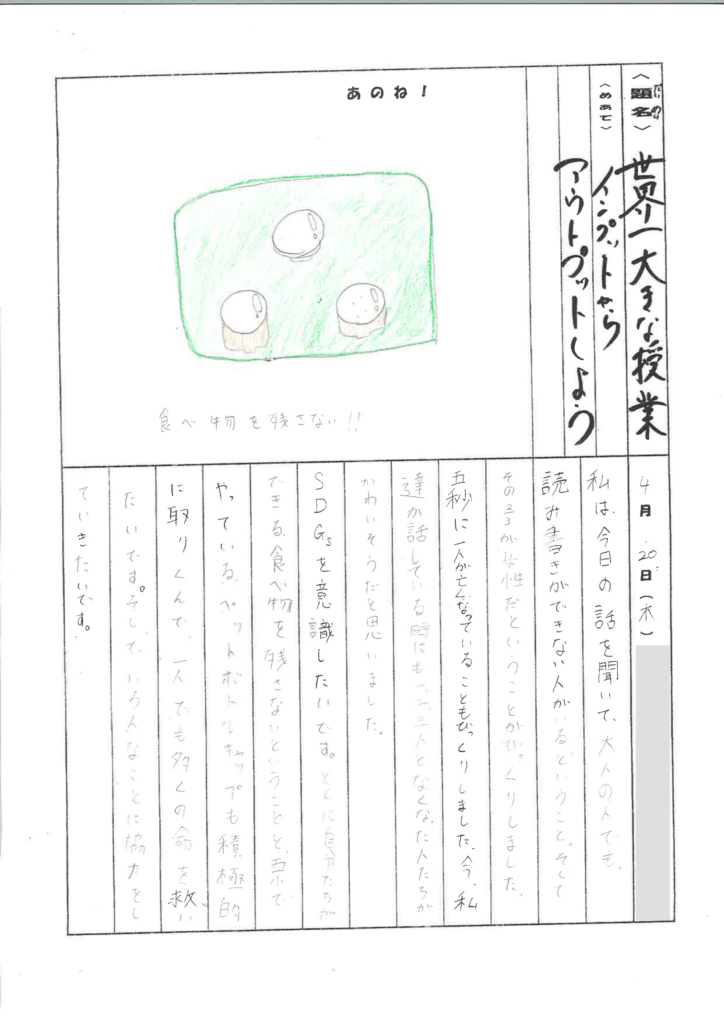 〈題名〉 世界一大きな授業
だいめい
〈めあて〉 インプットから
アウトプットしよう
あのね！
食べ物を残さない!!
4月20日(木)
私は、今日の話を聞いて、大人の人でも、
読み書きができない人がいるということ。そして
その2/3が女性だということがびっくりしました。
五秒に一人が亡くなっていることもびっくりしました。今、私
達が話している時にも一、二、三人となくなった人たちが
かわいそうだと思いました。
SDGsを意識したいです。とくに自分たちが
できる、食べ物を残さないということと、
やっている、ペットボトルキャップも積極的
に取りくんで、一人でも多くの命を救い
たいです。そして、いろんなことに協力をし
ていきたいです。